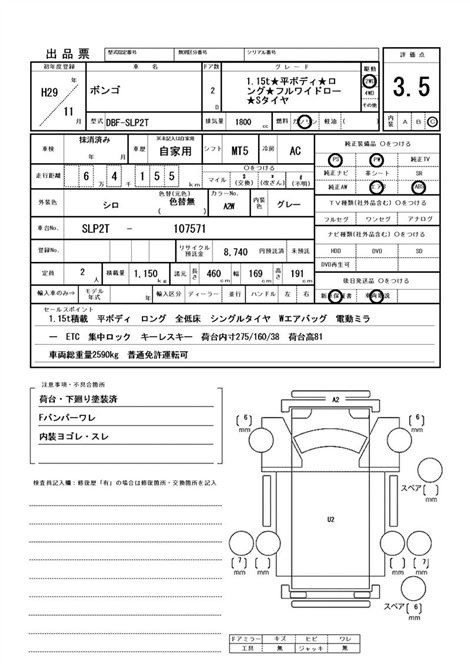 出品票 型式指定番号 類別区分番号 シリアル番号
初年度登録 車名 ドア数 グレード 駆動 評価点
H29 年 11 月
ボンゴ
2 D
1.15t★平ボディ★ロ
ング★フルワイドロー
★Sタイヤ
2WD
4WD
その他
3.5
型式 DBF-SLP2T 排気量 1800 cc 燃料 ガソリン 軽油 ( ) 内装 A B C
車検 抹消済み 車歴 ※未記入は自家用 自家用 シフト MT5 冷房 AC
純正装備品 〇をつける
PS PW 純正TV
純正ナビ 革シート SR
純正AW エアB ABS
走行距離 6万4千155km マイル $(交換) *(改ざん) #(不明) 〇をつける
外装色 シロ 色替(元色) 色替無 ( ) カラーNo. A2W 内装色 グレー
TV種類(社外品含む) 〇をつける
フルセグ ワンセグ アナログ
車台No. SLP2T - 107571
ナビ種類(社外品含む) 〇をつける
HDD DVD SD
DVD再生可
登録No. リサイクル預託金 8,740 円預託済 未預託
定員 2 人 積載量 1,150 kg 諸元 長さ 460 幅 169 高さ 191 cm
後日発送品 〇をつける
新車保証書 車両取説
輸入車のみ⇒ モデル年式 年 輸入区分 ディーラー 並行 ハンドル 左 右
セールスポイント
1.15t積載 平ボディ ロング 全低床 シングルタイヤ Wエアバッグ 電動ミラ
ー ETC 集中ロック キーレスキー 荷台内寸275/160/38 荷台高81
車両総重量2590kg 普通免許運転可
注意事項・不具合箇所
荷台・下廻り塗装済
Fバンパーワレ
内装ヨゴレ・スレ
検査員記入欄：修復歴「有」の場合は修復箇所・交換箇所を記入
A2
6 mm
6 mm
スペア( ) mm
U2
7 mm
5 mm
スペア 6 mm
Fドアミラー キズ ヒビ ワレ
工具 無 ジャッキ 無